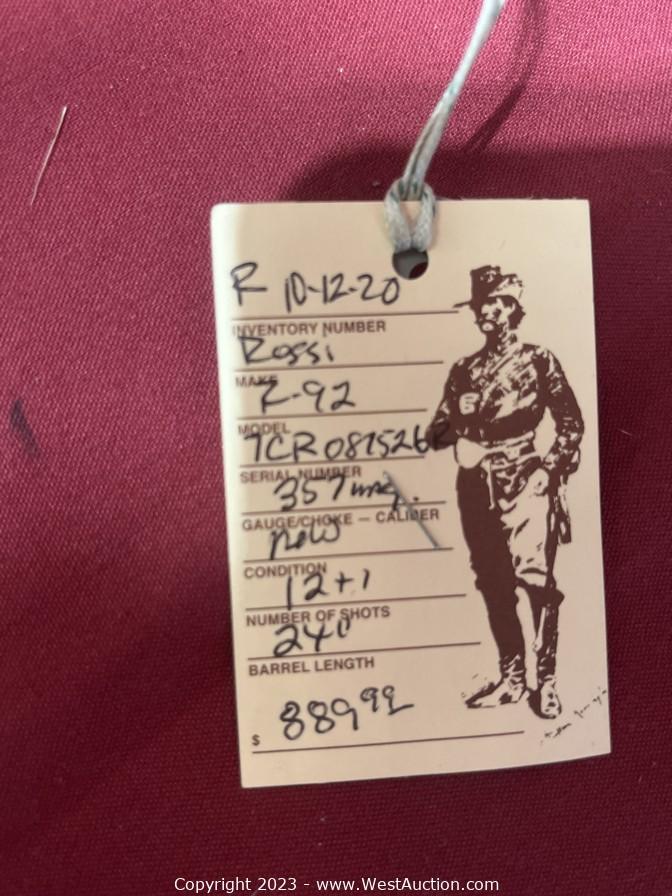 R 10-12-20
INVENTORY NUMBER
Rossi
MAKE
R-92
MODEL
7CR081526R
SERIAL NUMBER
357 mag.
GAUGE/CHOKE — CALIBER
new
CONDITION
12+1
NUMBER OF SHOTS
24"
BARREL LENGTH
$ 889 99
Copyright 2023 - www.WestAuction.com